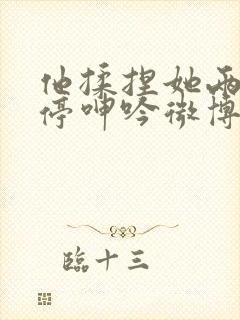 他揉捏她两
停呻吟微博
臨十三